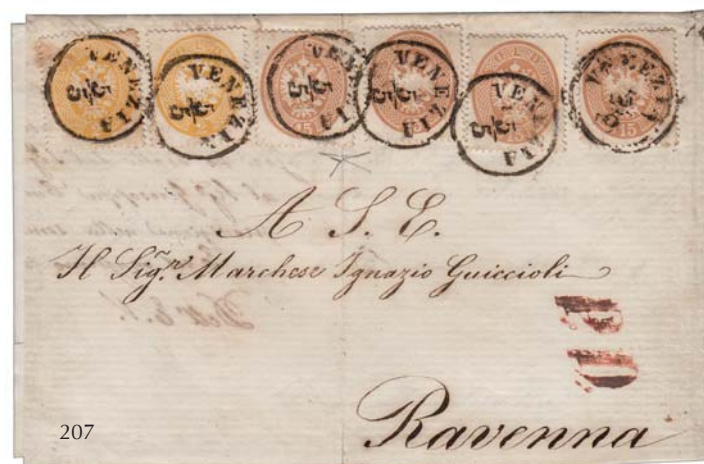 VENEZIA 5/5 VENEZIA 5/5 VENEZIA 5/5 VENEZIA 5/5 VENEZIA 5/5 VENEZIA 5/5
15 15 SOLDI 15
A S. E.
Il Sigr. Marchese Ignazio Guiccioli
P.D.
Ravenna
207